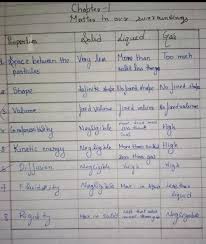 Chapter-1
Matter in our surroundings
Properties Solid Liquid Gas
1 Space between the particles Very less More than solid less than gas Too much
2 Shape Definite shape No fixed shape No fixed shape
3 Volume fixed volume fixed volume No fixed volume
4 Compressibility Negligible High
5 Kinetic energy Negligible More than solid less than gas High
6 Diffusion Negligible High High
7 Fluidity Negligible less than liquid
8 Rigidity Max in solid Negligible